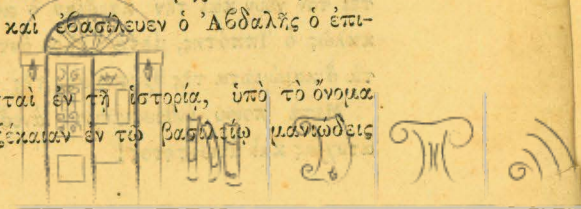 καὶ ἐβασίλευεν ὁ Ἀβδαλῆς ὁ ἐπι-
ται ἐν τῇ ἱστορίᾳ, ὑπὸ τὸ ὄνομα
ξέκαιαν ἐν τῷ βασιλείῳ μανιώδεις